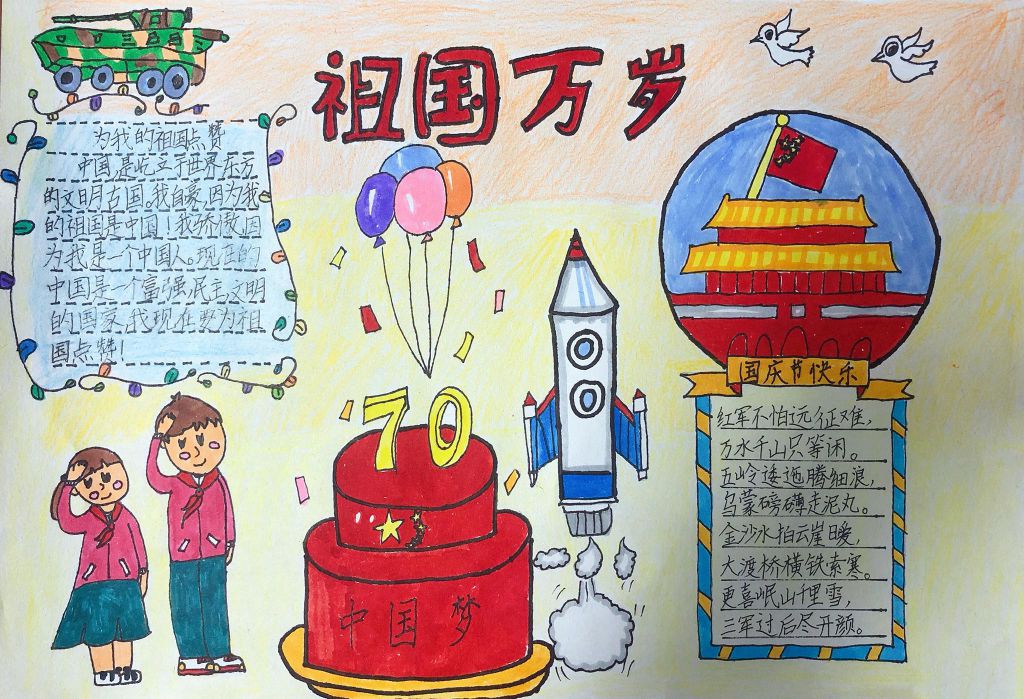 祖国万岁
为我的祖国点赞
中国,是屹立于世界东方
的文明古国。我自豪,因为我
的祖国是中国!我骄傲,因
为我是一个中国人。现在的
中国是一个富强,民主,文明
的国家,我现在要为祖
国点赞!
70
中国梦
国庆节快乐
红军不怕远征难,
万水千山只等闲。
五岭逶迤腾细浪,
乌蒙磅礴走泥丸。
金沙水拍云崖暖,
大渡桥横铁索寒。
更喜岷山千里雪,
三军过后尽开颜。